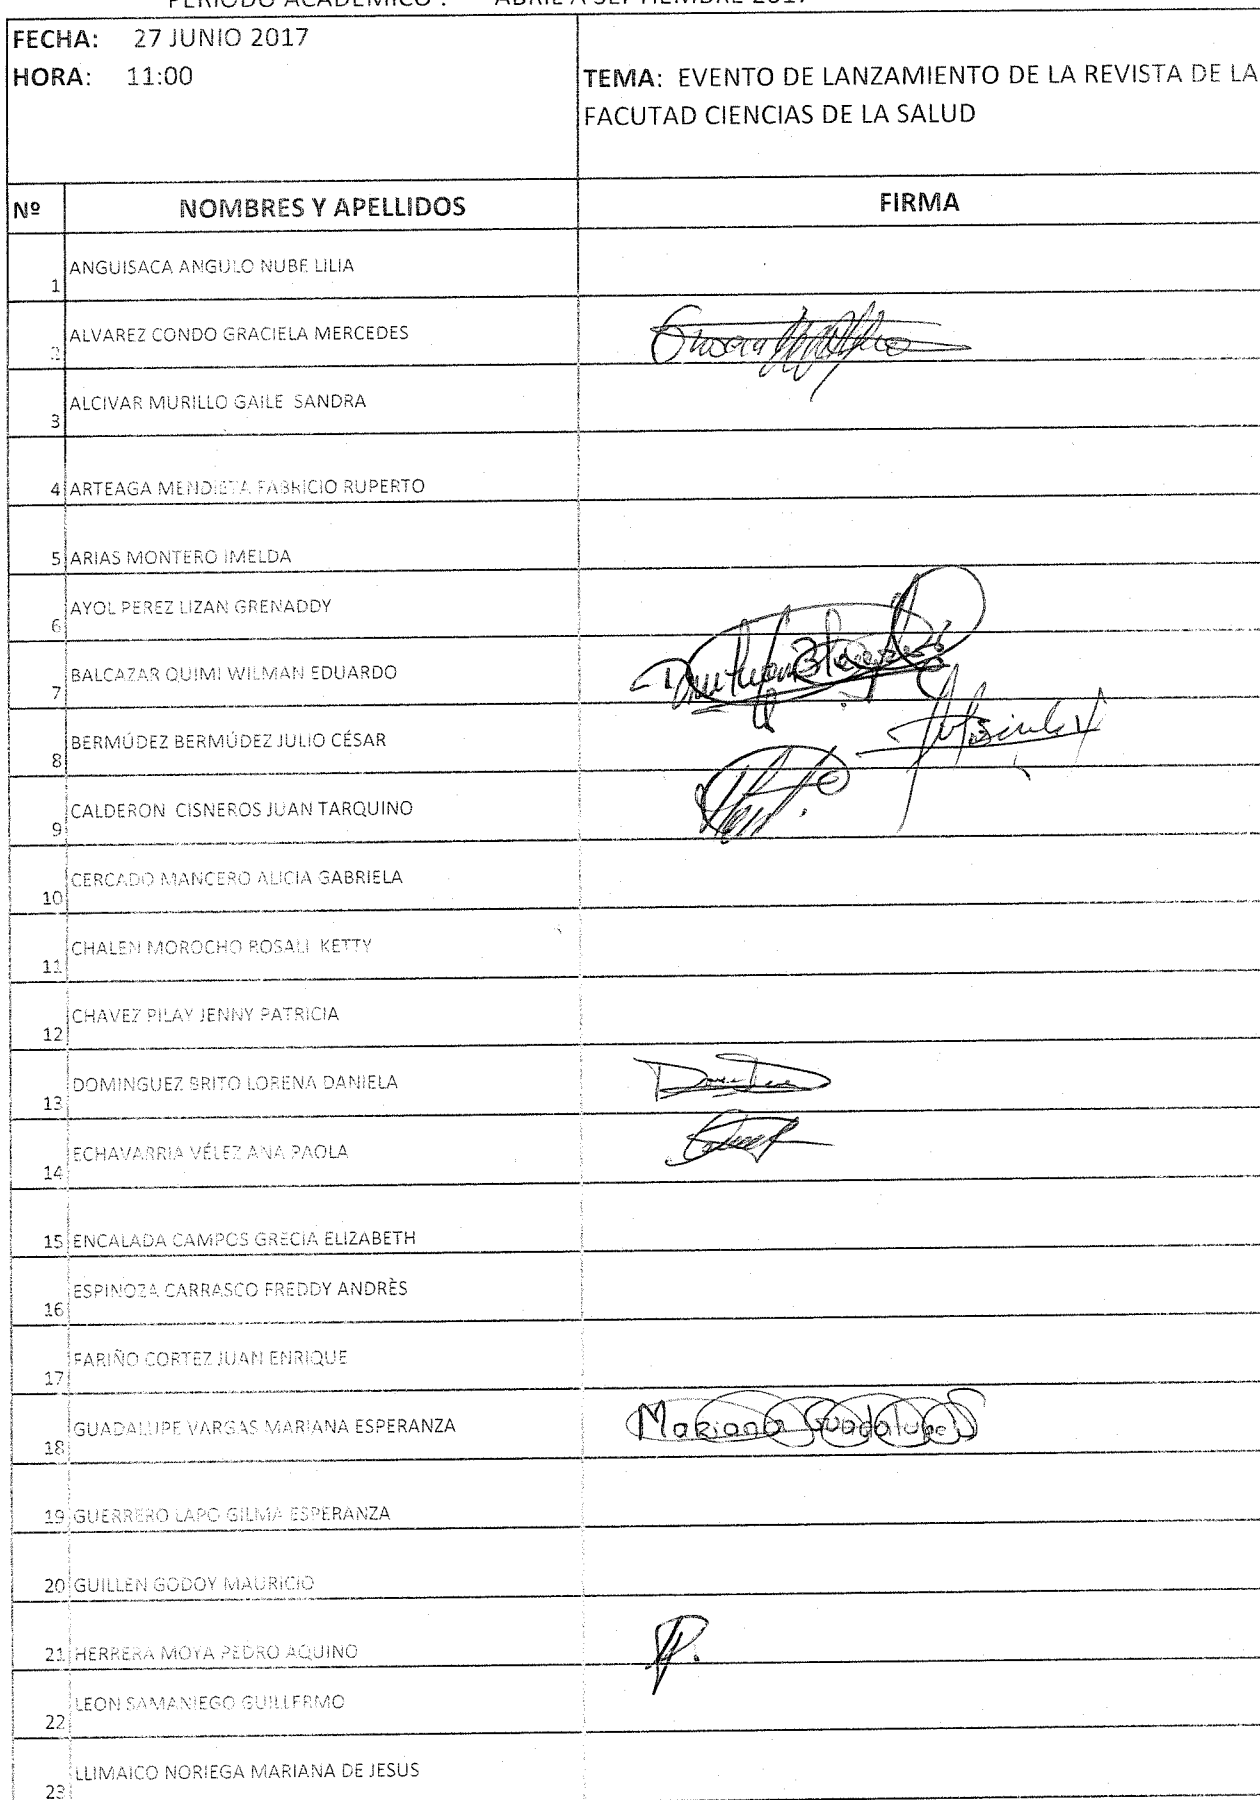 PERIODO ACADEMICO : ABRIL A SEPTIEMBRE 2017
FECHA: 27 JUNIO 2017
HORA: 11:00
TEMA: EVENTO DE LANZAMIENTO DE LA REVISTA DE LA
FACUTAD CIENCIAS DE LA SALUD
Nº NOMBRES Y APELLIDOS FIRMA
1 ANGUISACA ANGULO NUBE LILIA
2 ALVAREZ CONDO GRACIELA MERCEDES
3 ALCIVAR MURILLO GAILE SANDRA
4 ARTEAGA MENDIETA FABRICIO RUPERTO
5 ARIAS MONTERO IMELDA
6 AYOL PEREZ LIZAN GRENADDY
7 BALCAZAR QUIMI WILMAN EDUARDO
8 BERMÚDEZ BERMÚDEZ JULIO CÉSAR
9 CALDERON CISNEROS JUAN TARQUINO
10 CERCADO MANCERO ALICIA GABRIELA
11 CHALEN MOROCHO ROSALI KETTY
12 CHAVEZ PILAY JENNY PATRICIA
13 DOMINGUEZ BRITO LORENA DANIELA
14 ECHAVARRIA VÉLEZ ANA PAOLA
15 ENCALADA CAMPOS GRECIA ELIZABETH
16 ESPINOZA CARRASCO FREDDY ANDRÈS
17 FARIÑO CORTEZ JUAN ENRIQUE
18 GUADALUPE VARGAS MARIANA ESPERANZA Mariana Guadalupe
19 GUERRERO LAPO GILMA ESPERANZA
20 GUILLEN GODOY MAURICIO
21 HERRERA MOYA PEDRO AQUINO
22 LEON SAMANIEGO GUILLERMO
23 LLIMAICO NORIEGA MARIANA DE JESUS